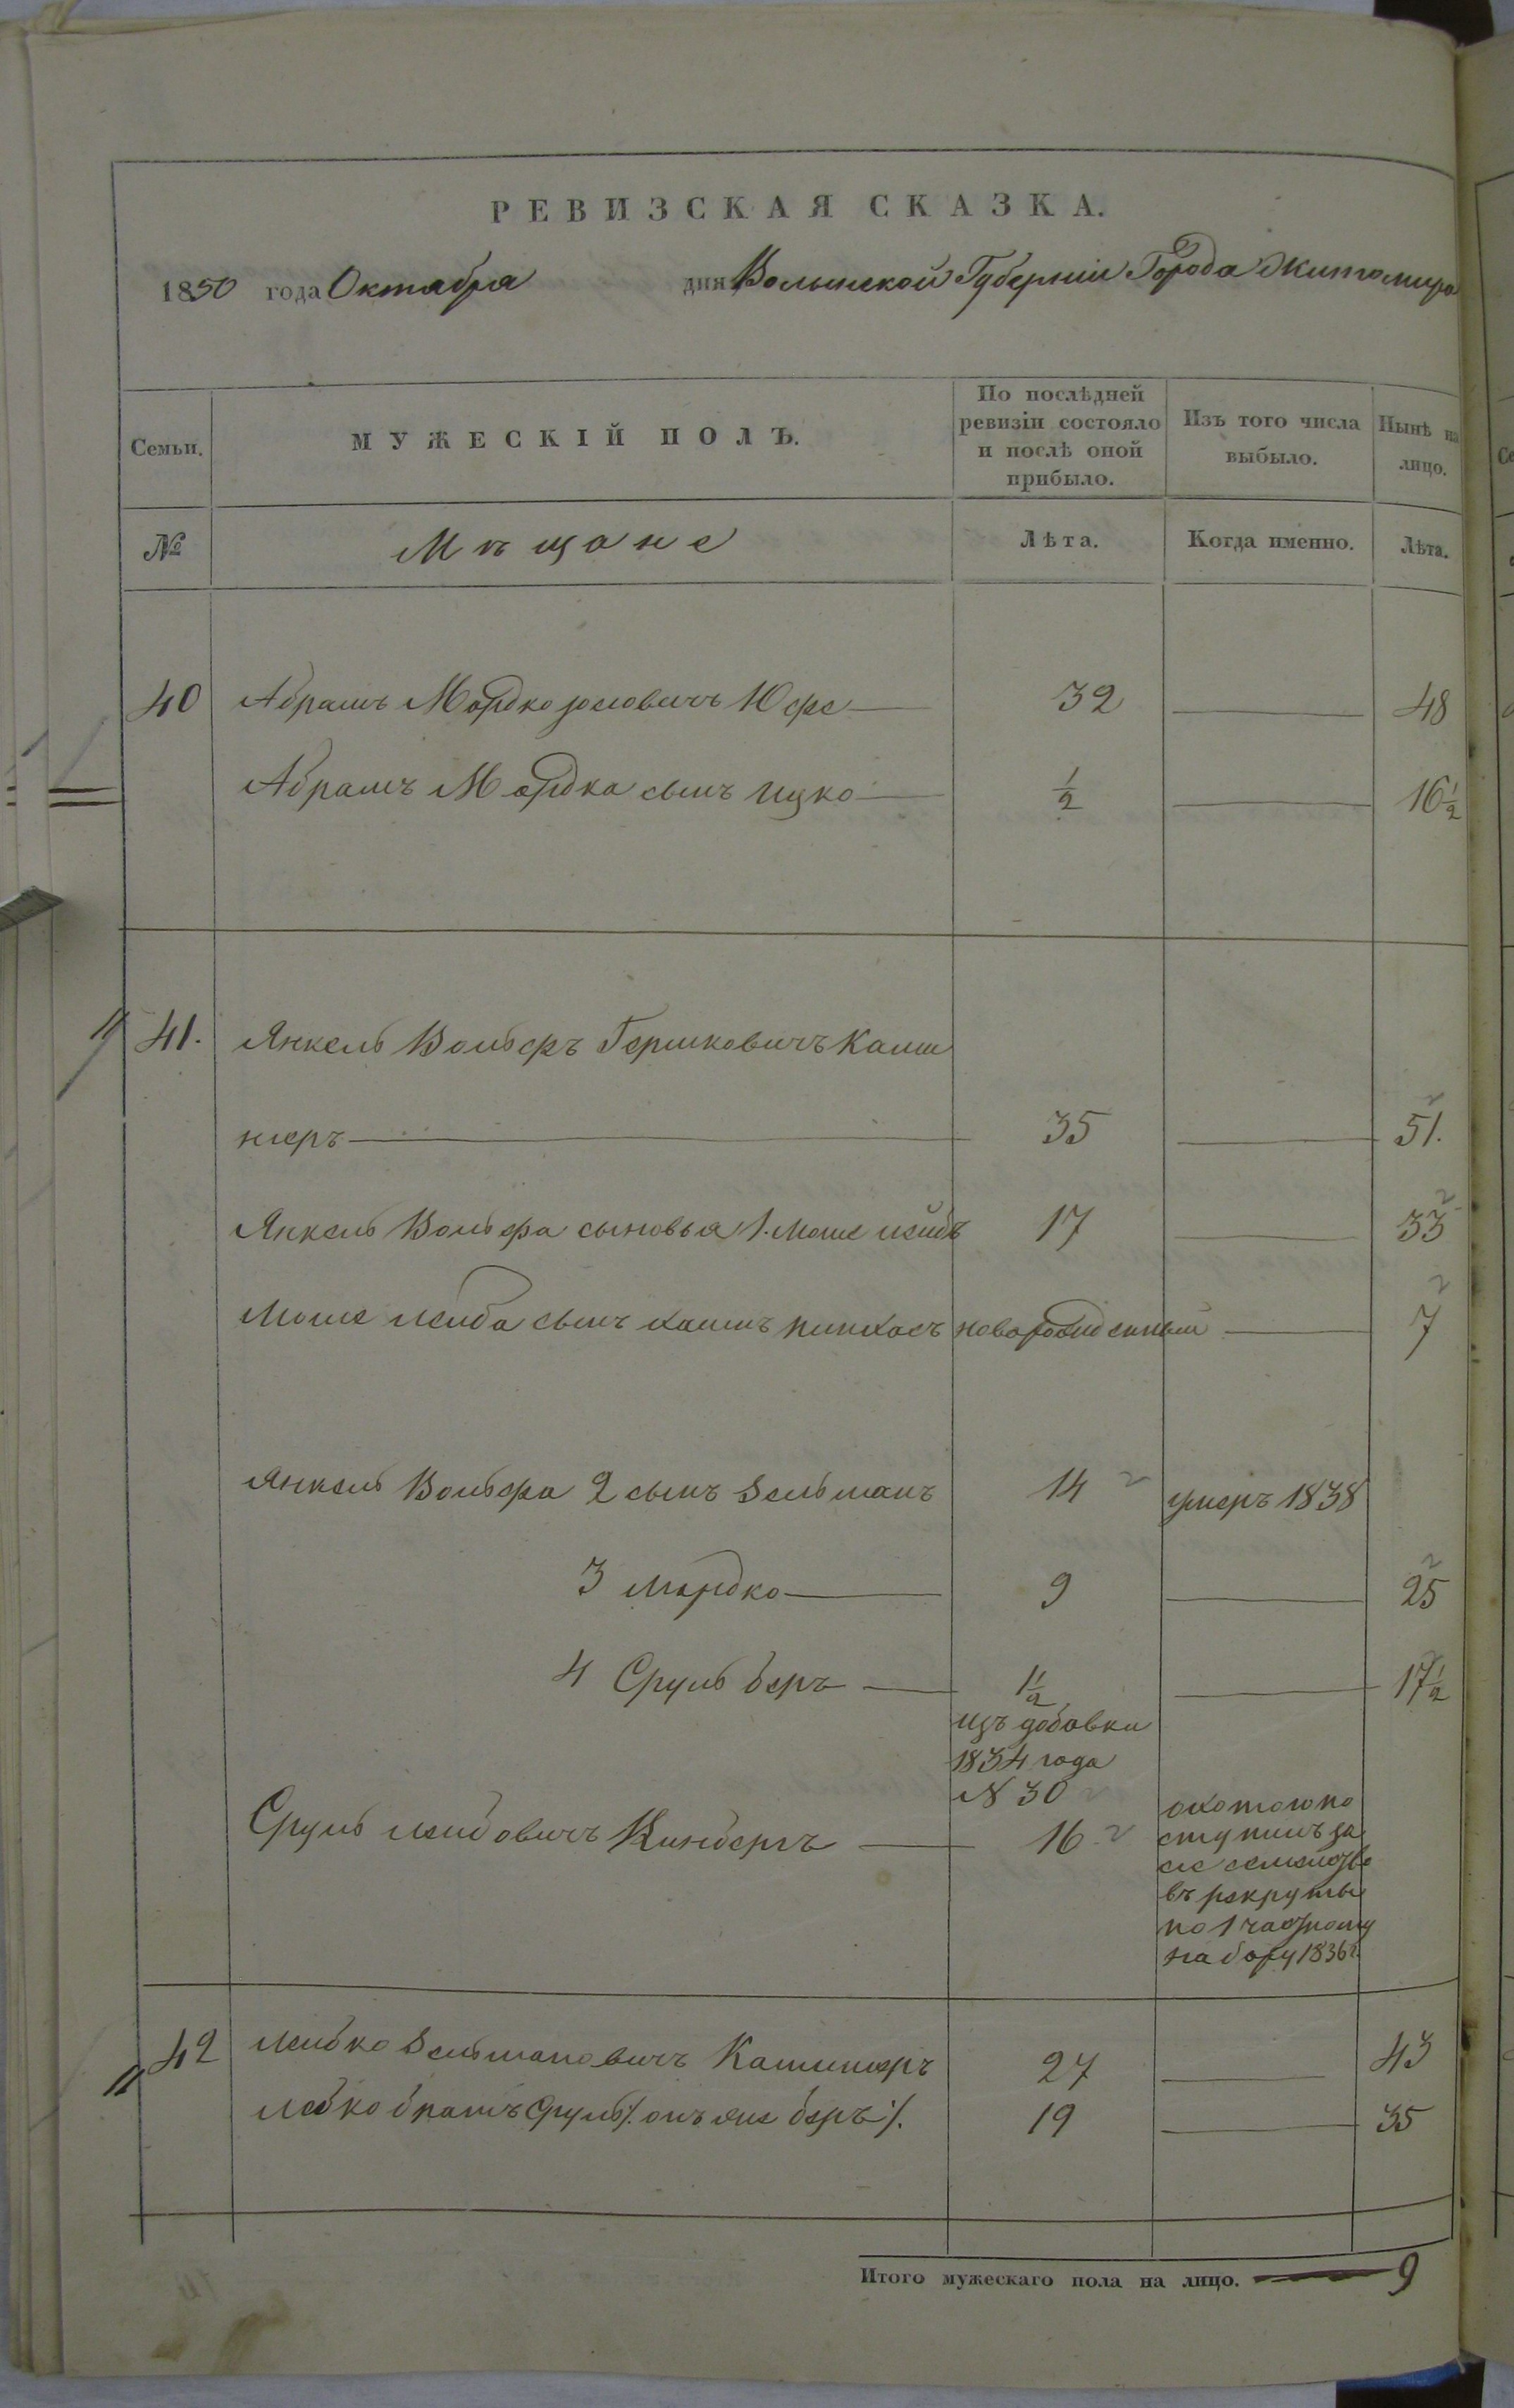 РЕВИЗСКАЯ СКАЗКА.
1850 года Октября дня Волынской Губернии Города Житомира
Семьи. МУЖЕСКІЙ ПОЛЪ. По послѣдней ревизіи состояло и послѣ оной прибыло. Изъ того числа выбыло. Нынѣ на лицо.
№ Мѣщане Лѣта. Когда именно. Лѣта.
40 Абрамъ Мордко Іосіовичъ Юфе 32 48
Абрамъ Мордка сынъ Ицко ½ 16½
41. Янкель Вольфъ Гершковичъ Кашп
перъ 35 51.
Янкель Вольфа сыновья 1. Моше Лейбъ 17 33
Моше Лейба сынъ Хаимъ Пинхасъ новорожденный 7
Янкель Вольфа 2 сынъ Зельманъ 14 умеръ 1838
3 Мордко 9 25
4 Сруль Беръ 1½ 17½
изъ добавки
1834 года
N 30
Сруль Лейбовичъ Кинберъ 16
охотою по
ступилъ за
сіе семейство
въ рекруты
по 1 частному
набору 1836 г.
42 Лейбко Зельмановичъ Кашперъ 27 43
Лейбко братъ Сруль /. онъ же Беръ ./ 19 35
Итого мужескаго пола на лицо. 9